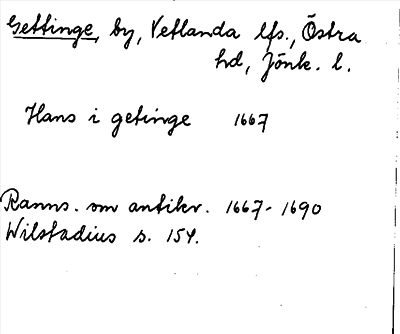 Gettinge, by, Vetlanda lfs., Östra
hd, Jönk. l.
Hans i getinge 1667
Ranns. om antikv. 1667-1690
Wilstadius s. 154.